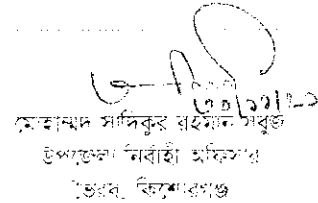 ৩০/১১/২০
মোহাম্মদ সাদিকুর রহমান সবুজ
উপজেলা নির্বাহী অফিসার
ভৈরব, কিশোরগঞ্জ